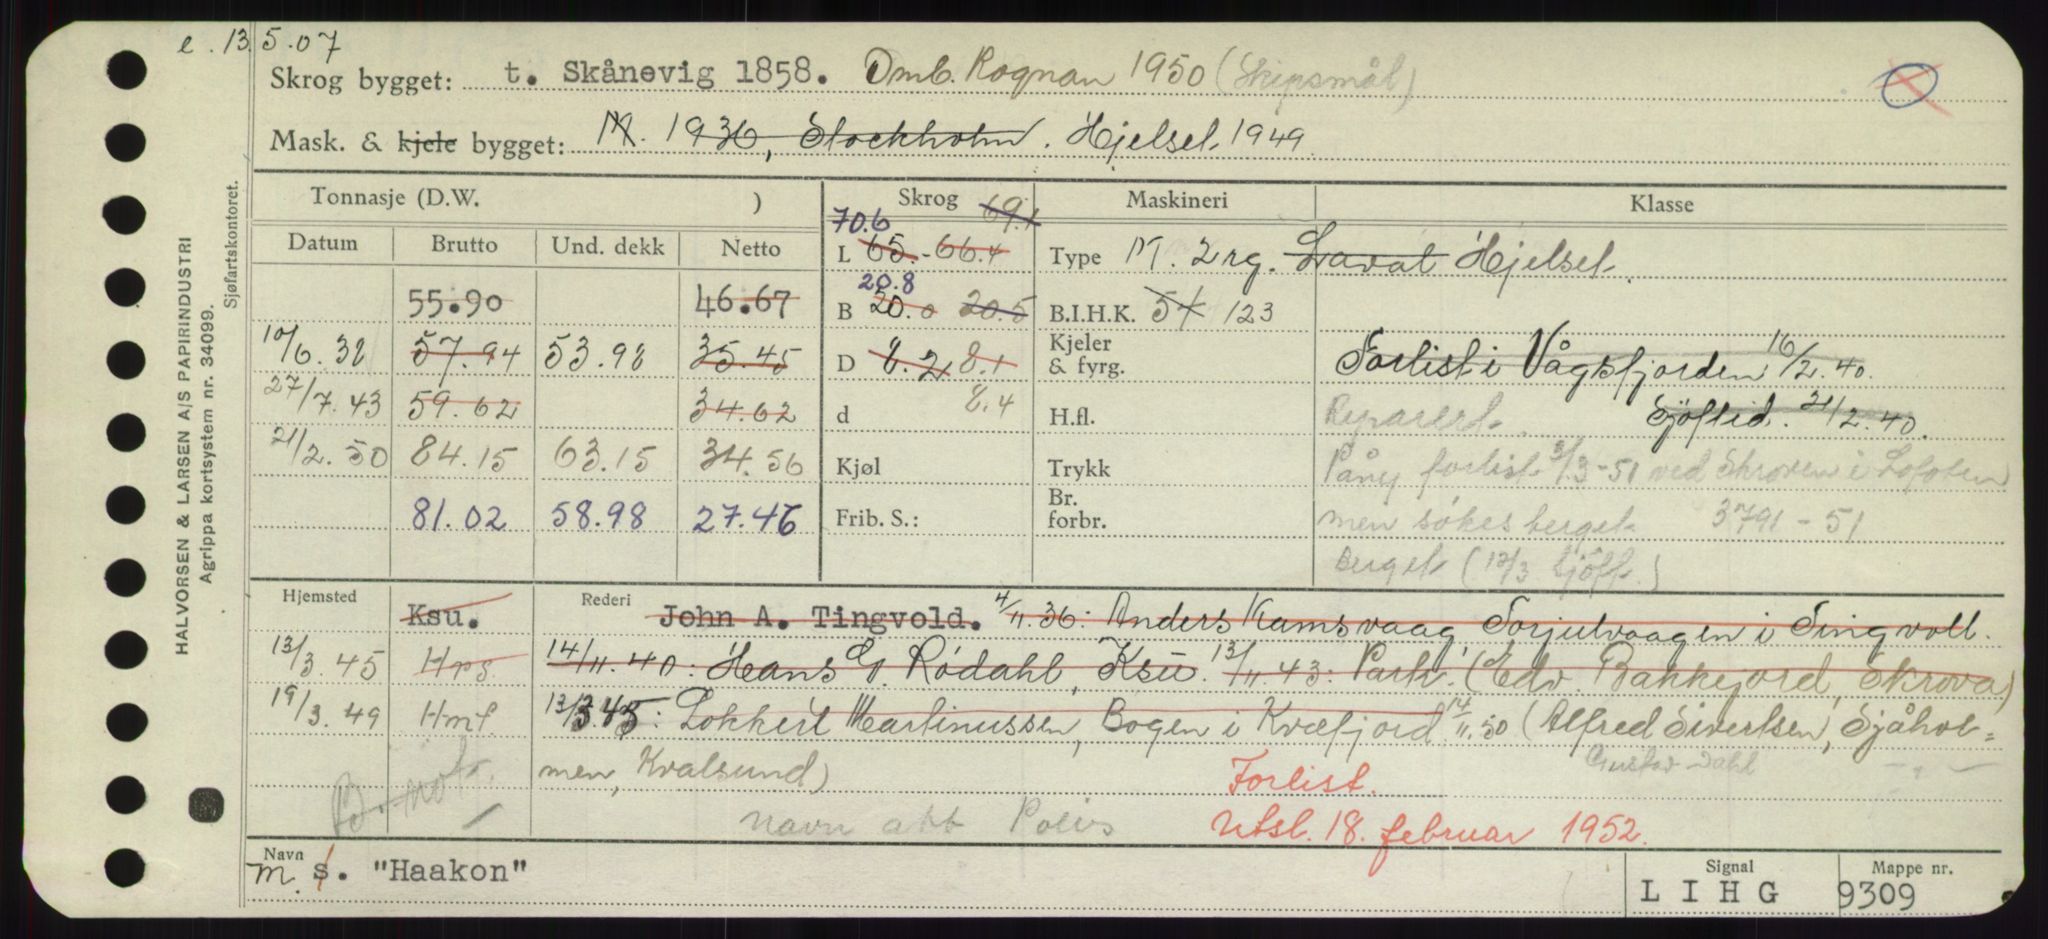 e. 13.5.07
Skrog bygget: t. Skånevig 1858. Omb. Rognan 1950 (Skipsmål)
Mask. & kjele bygget: M. 1936, Stockholm. Hjelset 1949
Tonnasje (D.W. ) Skrog 69.1 Maskineri Klasse
Datum Brutto Und. dekk Netto
70.6
L 65.- 66.4
Type M. 2 rg. Laval Hjelset.
55.90 46.67
20.8
B 20.0 20.5
B.I.H.K. 54 123
10/6.38 57.94 53.98 35.45
D 8.2 8.1
Kjeler & fyrg.
Forlist i Vågsfjorden 16/2.40.
27/7.43 59.62 34.62
d 8.4
H.fl.
Reparert. Sjöftid. 21/2.40.
21/2.50 84.15 63.15 34.56
Kjøl
Trykk
Påny forlist 3/3-51 ved Skroven i Lofoten
81.02 58.98 27.46
Frib. S.:
Br. forbr.
men søkes berget 3791-51
Berget (13/3 Sjöft.)
Hjemsted Ksu. Rederi John A. Tingvold. 4/11 36: Anders Kamsvaag, Torjulvaagen i Tingvoll.
13/3.45 Hrs 14/11.40: Hans G. Rödahl, Ksu. 13/11 43: Part. (Edv. Bakkejord, Skrova)
19/3.49 Hmf 13/3.45: Lokkert Martinussen, Bogen i Kvæfjord 14/11.50 (Alfred Sivertsen, Sjåhol=
men, Kvalsund) Gustav Dahl
Forlist.
Navn att Utsl. 18. februar 1952.
Navn m. s. "Haakon"
Signal LIHG
Mappe nr. 9309
HALVORSEN & LARSEN A/S PAPIRINDUSTRI
Agrippa kortsystem nr. 34099.
Sjøfartskontoret.